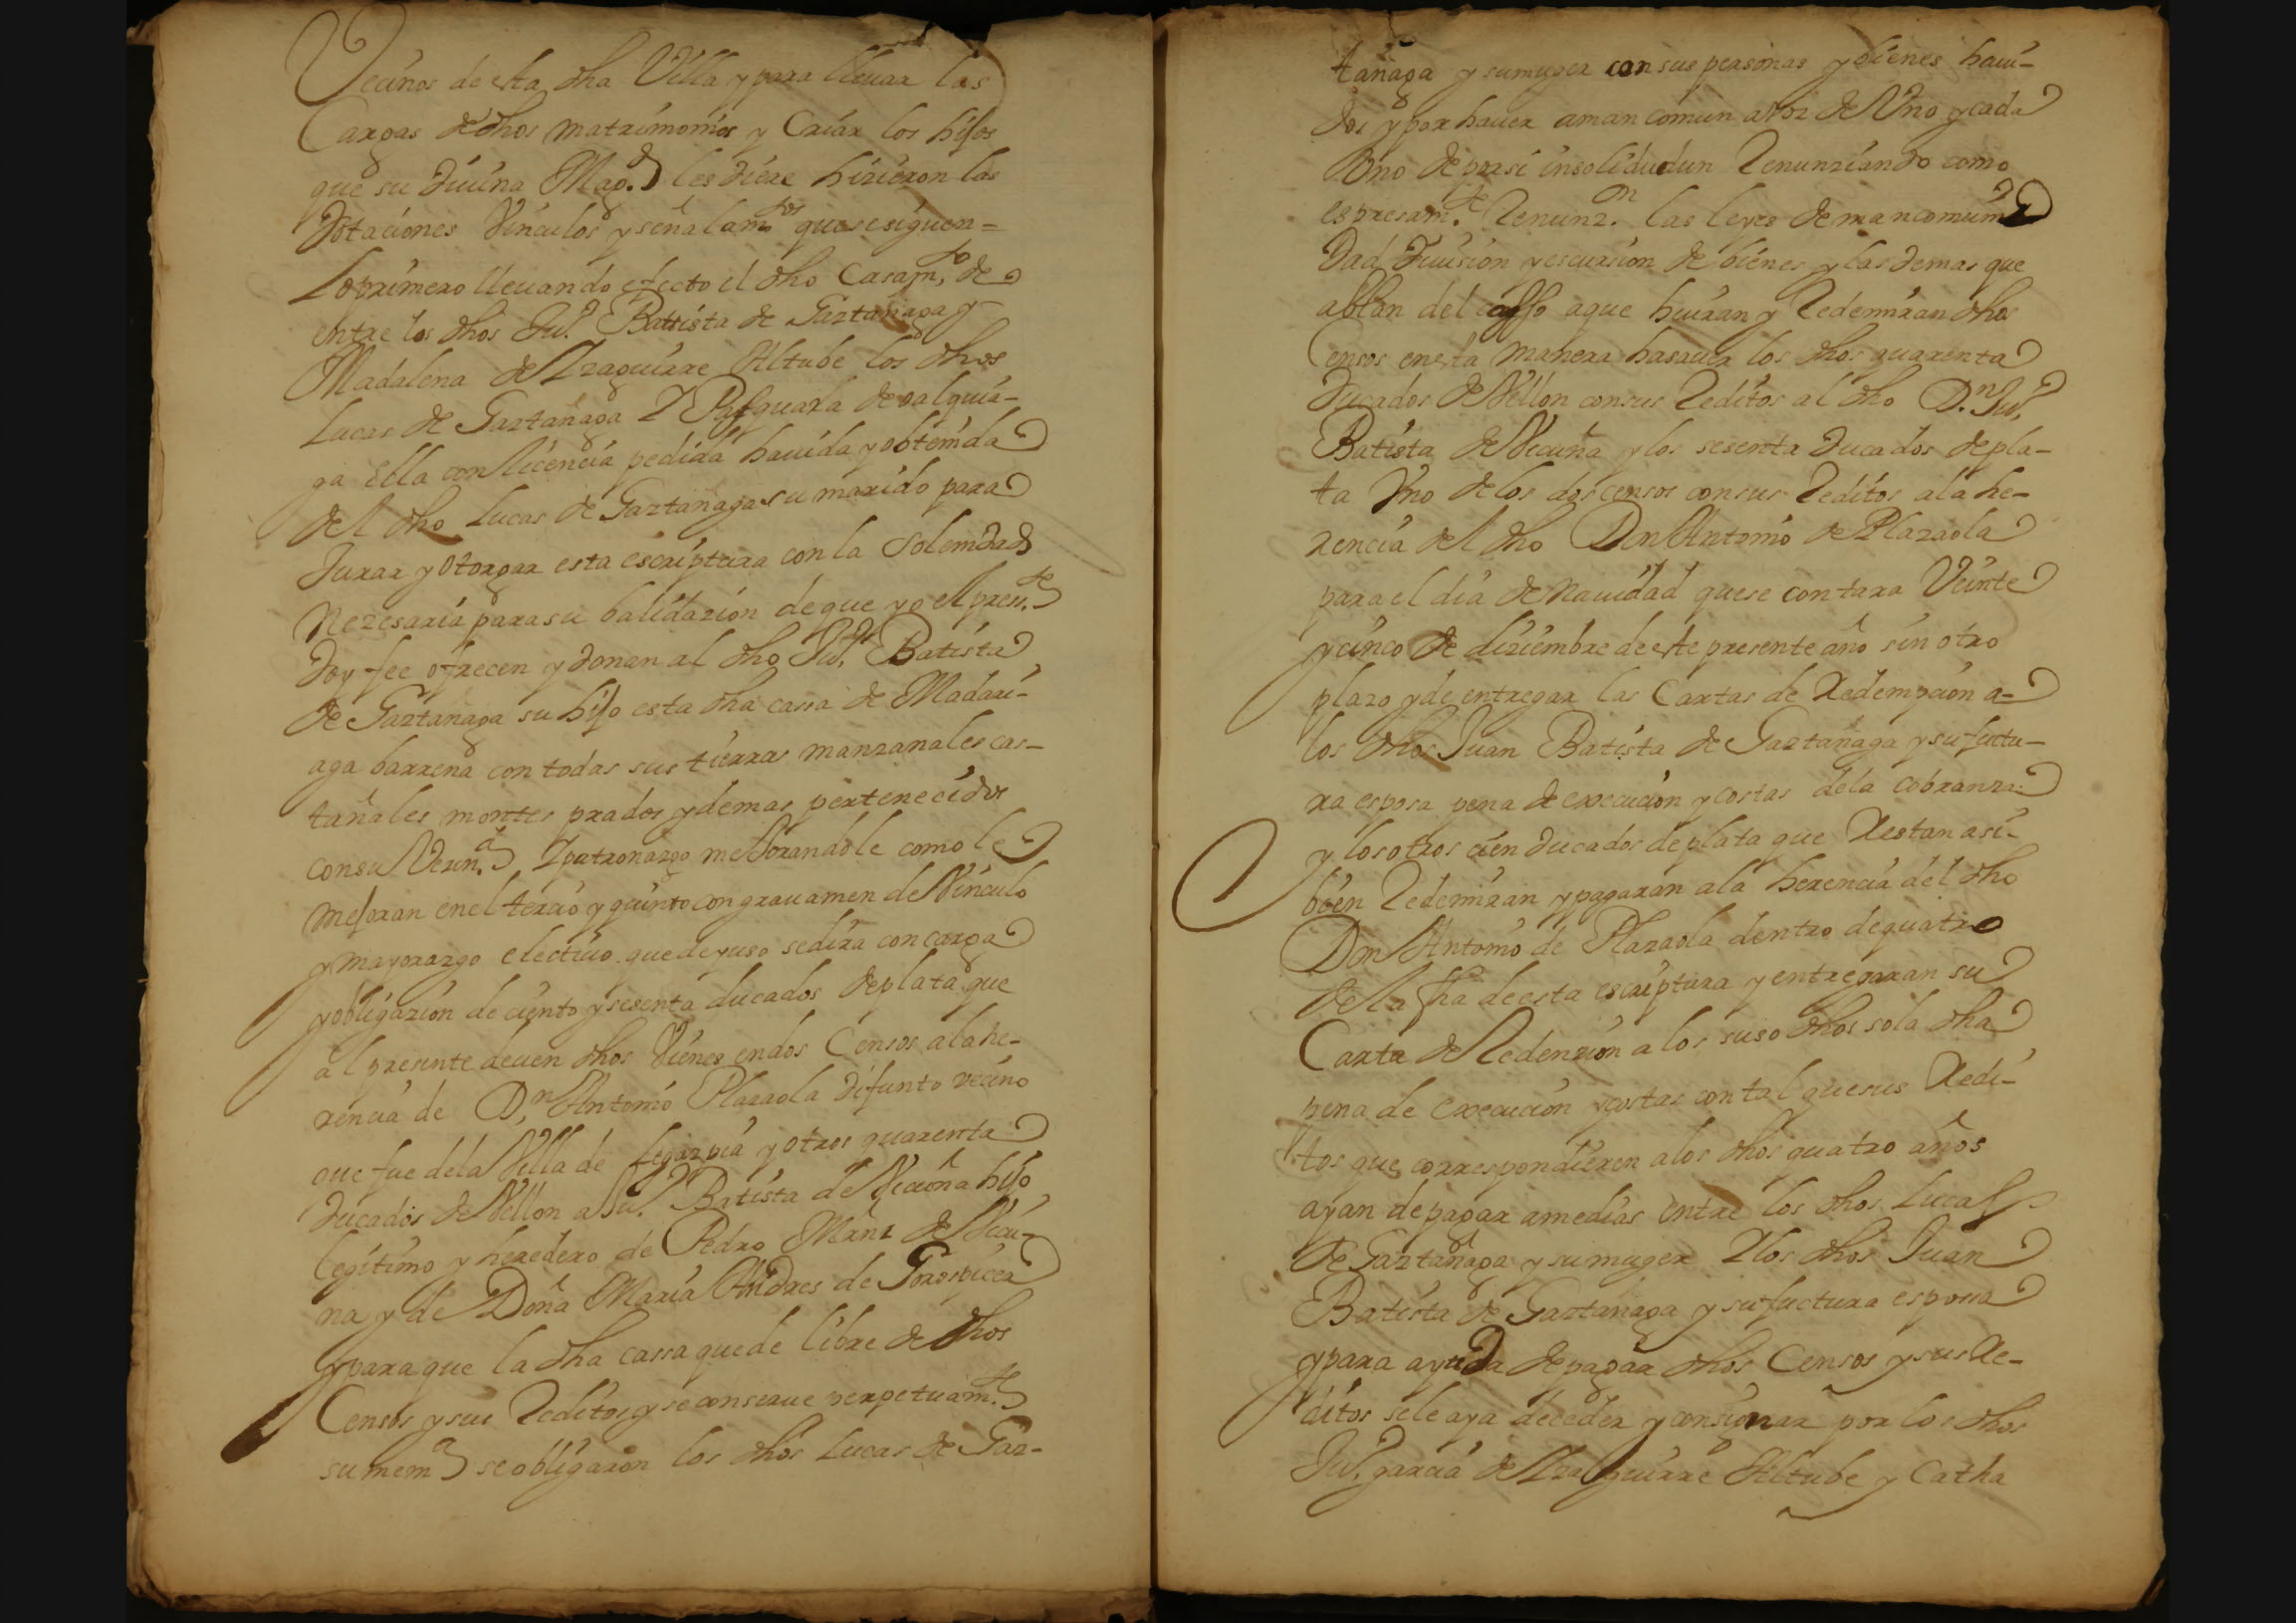 Vecinos de esta dha Villa y para lleuar las
Cargas de dhos matrimonios y Criar los hijos
que su Diuina Magd. les diere hizieron las
Dotaciones Vinculos y señalamtos que se siguen=
Lo primero lleuando efecto el dho Casamto. de
entre los dhos Ju.º Battista de Gaztañaga y
Madalena de Yzaguirre Altube los dhos
Lucas de Gaztañaga Y Pasquala de
ga Ella con licencia pedida hauida y obtenida
del dho Lucas de Gaztañaga su marido para
Jurar y Otorgar esta escriptura con la Solemidad
Nezesaria para su balidazion de que yo el presste.
Doy fee ofrecen y donan al dho Ju.º Batista
de Gaztañaga su hijo esta dha cassa de Madari-
aga barrena con todas sus tierras manzanales cas-
tañales montes prados y demas pertenecidos
con su Vezin.d Y patronazgo mejorandole como le
mejoran en el terzio y quinto con grauamen de Vinculo
y mayorazgo electiuo que de yuso se dira con carga
y obligazion de ciento y sesenta ducados de plata que
al presente deuen dhos Vienes en dos Censos a la he-
rencia de D.n Antonio Plazaola difunto vecino
que fue de la Villa de Legazpia y otros quarenta
Ducados de Vellon a Ju.º Batista de Vicuña hijo
legitimo y heredero de Pedro Mrñz de Vicu-
na y de Doña Maria Andres de Gorospicea
y para que la dha cassa quede libre de dhos
Censos y sus Reditos y se conserue perpetuamte.
su mem.ª se obligaron los dhos Lucas de Gaz-
tañaga y su muger con sus personas y bienes haui-
dos y por hauer a man comun a voz de Vno y cada
Vno de por si insolidudun Renunziando como
espresamte. Renunz.n las leyes de mancomuni
Dad Diuision y escursion de bienes y las demas que
ablan del casso a que huiran y Redemiran dhos
Censos en esta manera hasauer los dhos quarenta
Ducados de Vellon con sus Reditos al dho D.n Ju.º
Batista de Vicuña y los sesenta Ducados de pla-
ta Vno de los dos censos con sus Reditos a la he-
rencia del dho Don Antonio de Plazaola
para el dia de Nauidad que se contara Veinte
y cinco de diziembre de este presente año sin otro
plazo y de entregar las Cartas de Redempcion a-
los dhos Juan Batista de Gaztañaga y su futu-
ra esposa pena de execucion y costas de la cobranza
y los otros cien Ducados de plata que Restan asi-
bien Redemiran y pagaran a la herencia del dho
Don Antonio de Plazaola dentro de quatro
de la fha de esta escriptura y entregaran su
Carta de Redenzion a los suso dhos so la dha
pena de execucion y costas con tal que sus Redi-
tos que correspondieren a los dhos quatro años
ayan de pagar a medias entre los dhos Lucas
de Gaztañaga y su muger Y los dhos Juan
Batista de Gaztañaga y su fuctura esposa
y para ayuda de pagar dhos Censos y sus Re-
ditos se le aya de ceder y consignar por los dhos
Ju.º garcia de Yzaguirre Altube y Catha